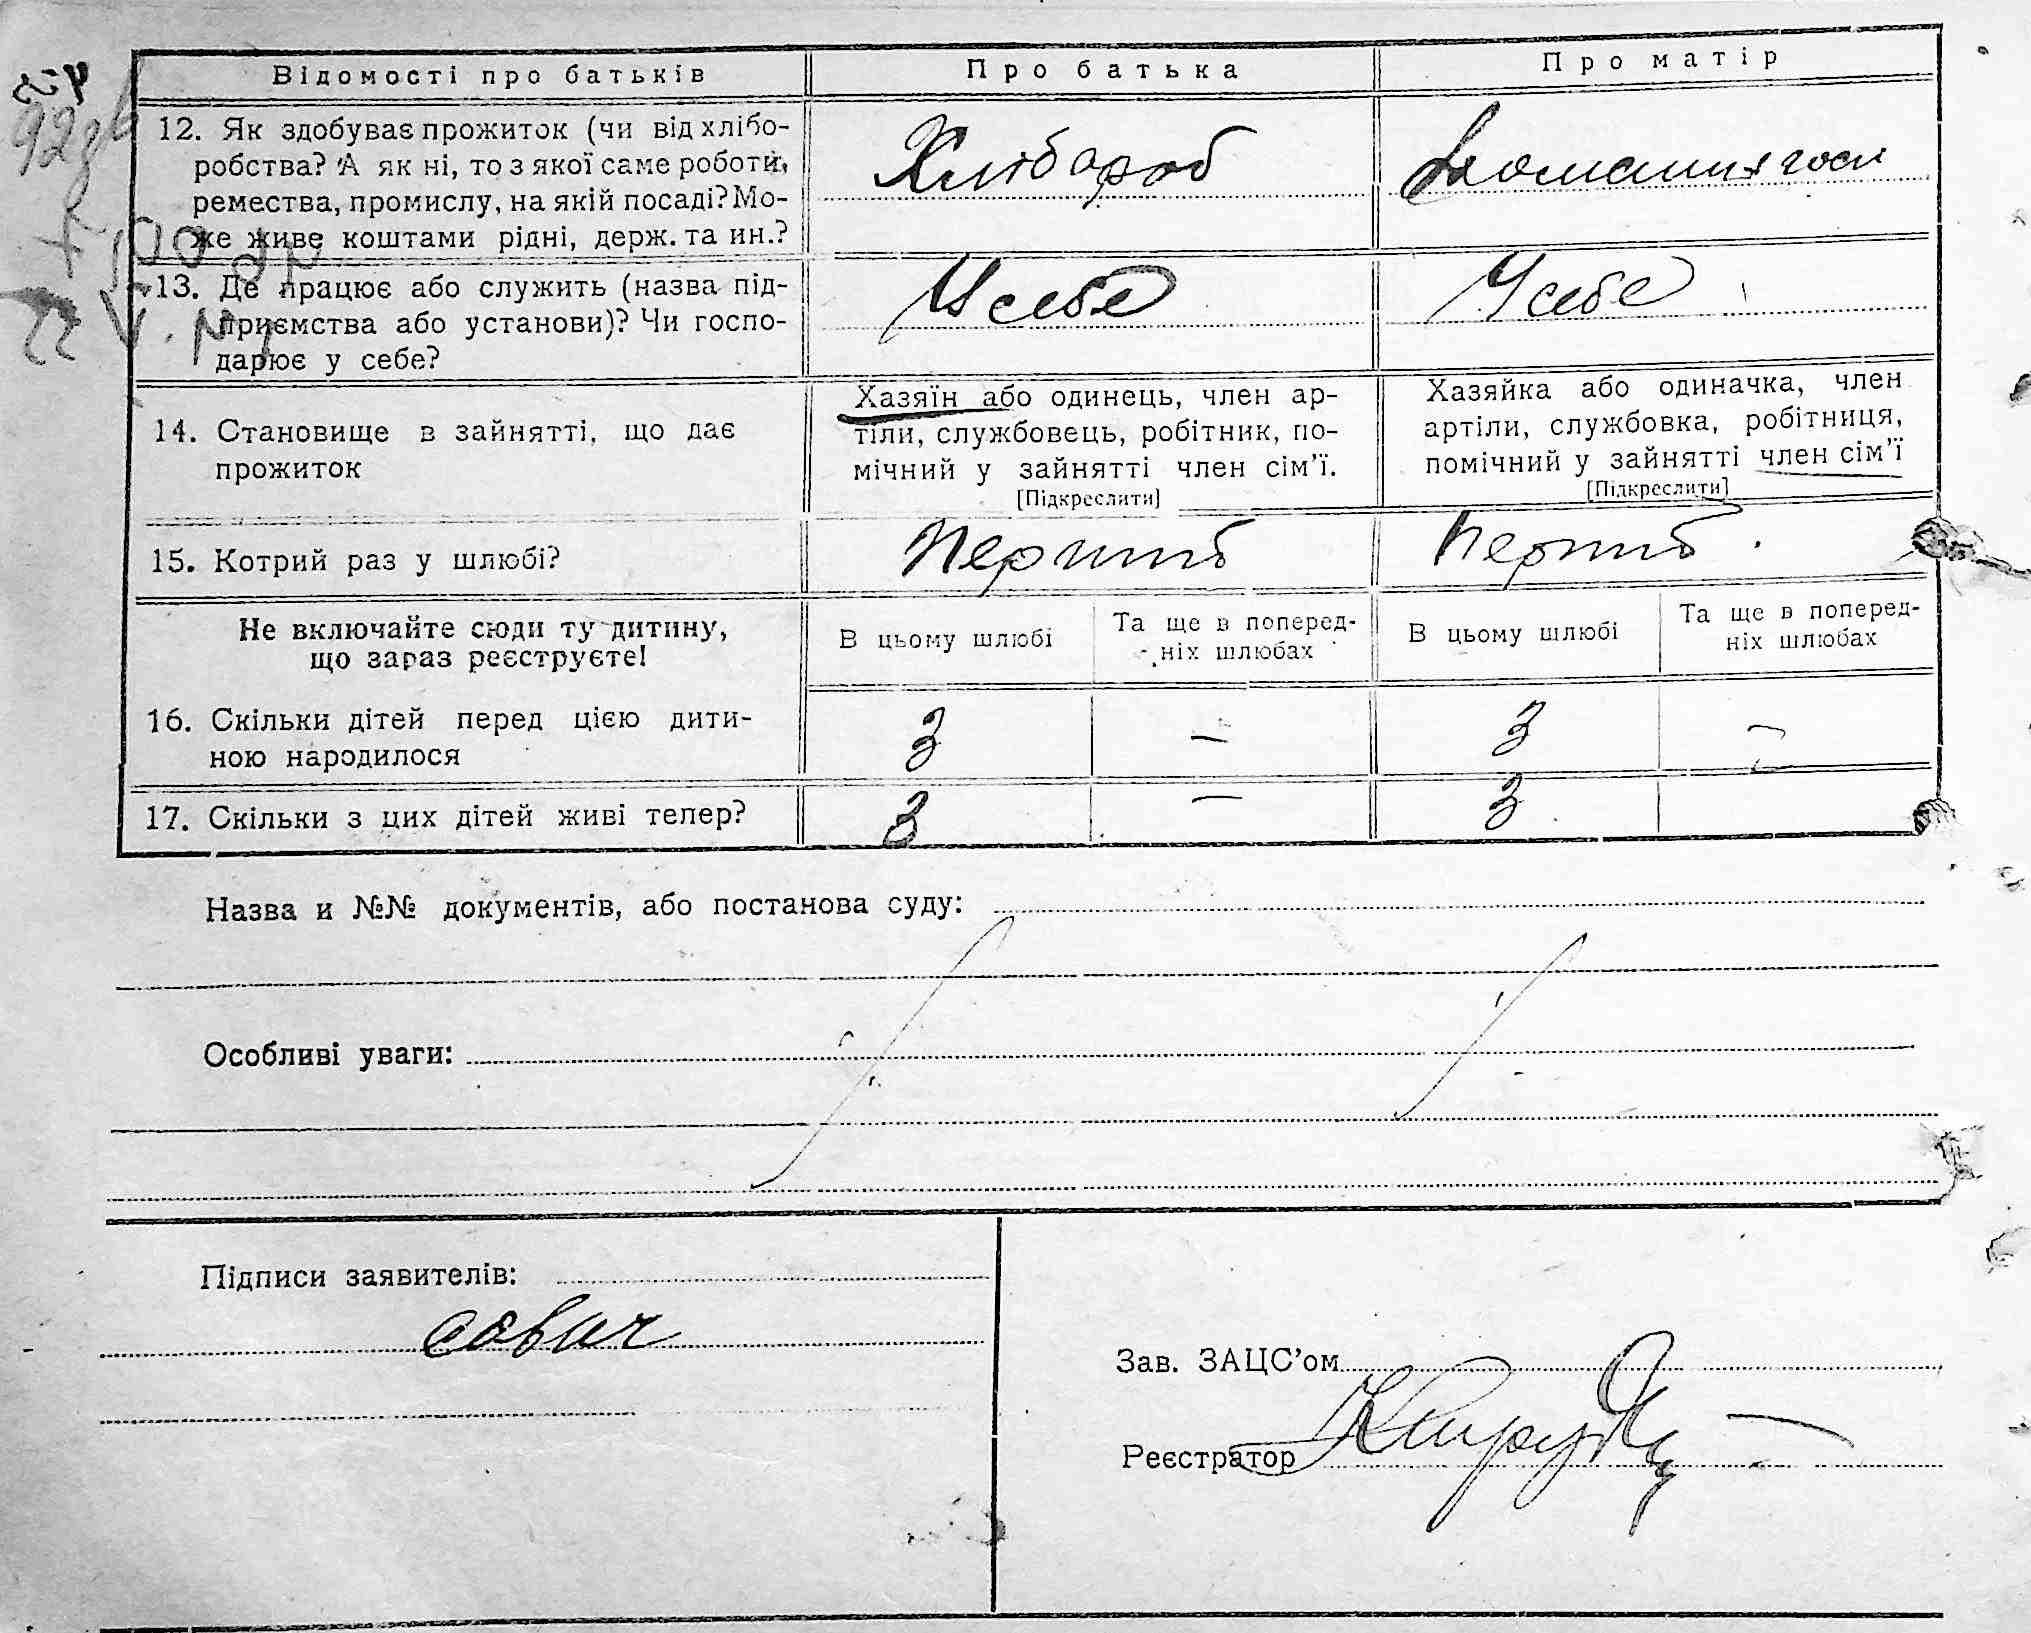 Відомості про батьків Про батька Про матір
12. Як здобуває прожиток (чи від хлібо-
робства? А як ні, то з якої саме роботи,
ремества, промислу, на якій посаді? Мо-
же живе коштами рідні, держ. та ин.?
Хлібороб
Домашня госп
13. Де працює або служить (назва під-
приємства або установи)? Чи госпо-
дарює у себе?
У себе
У себе
14. Становище в зайнятті, що дає
прожиток
Хазяїн або одинець, член ар-
тіли, службовець, робітник, по-
мічний у зайнятті член сім'ї.
[Підкреслити]
Хазяйка або одиначка, член
артіли, службовка, робітниця,
помічний у зайнятті член сім'ї
[Підкреслити]
15. Котрий раз у шлюбі?
Перший
Перший
Не включайте сюди ту дитину,
що зараз реєструєте!
В цьому шлюбі
Та ще в поперед-
ніх шлюбах
В цьому шлюбі
Та ще в поперед-
ніх шлюбах
16. Скільки дітей перед цією дити-
ною народилося
3 — 3 —
17. Скільки з цих дітей живі тепер?
3 — 3
Назва и №№ документів, або постанова суду:
Особливі уваги:
Підписи заявителів:
Савич
Зав. ЗАЦС'ом
Реєстратор